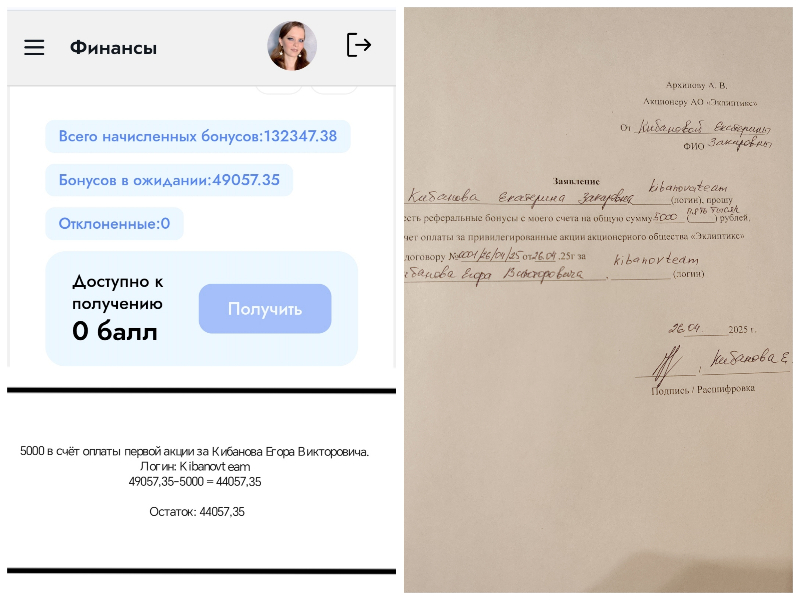 Финансы
Всего начисленных бонусов:132347.38
Бонусов в ожидании:49057.35
Отклоненные:0
Доступно к
получению
0 балл
Получить
5000 в счёт оплаты первой акции за Кибанова Егора Викторовича.
Логин: Kibanovteam
49057,35-5000 = 44057,35
Остаток: 44057,35
Архипову А. В.
Акционеру АО «Эклиптикс»
От Кибановой Екатерины
ФИО Закировны
Заявление
Кибанова Екатерина Закировна kibanovateam (логин), прошу
есть реферальные бонусы с моего счета на общую сумму 5000 (пять тысяч) рублей,
чет оплаты за привилегированные акции акционерного общества «Эклиптикс»
договору №0001/26/04/25 от 26.04.25г за
ибанова Егора Викторовича, kibanovteam (логин)
26.04 2025 г.
, Кибанова Е.
Подпись / Расшифровка